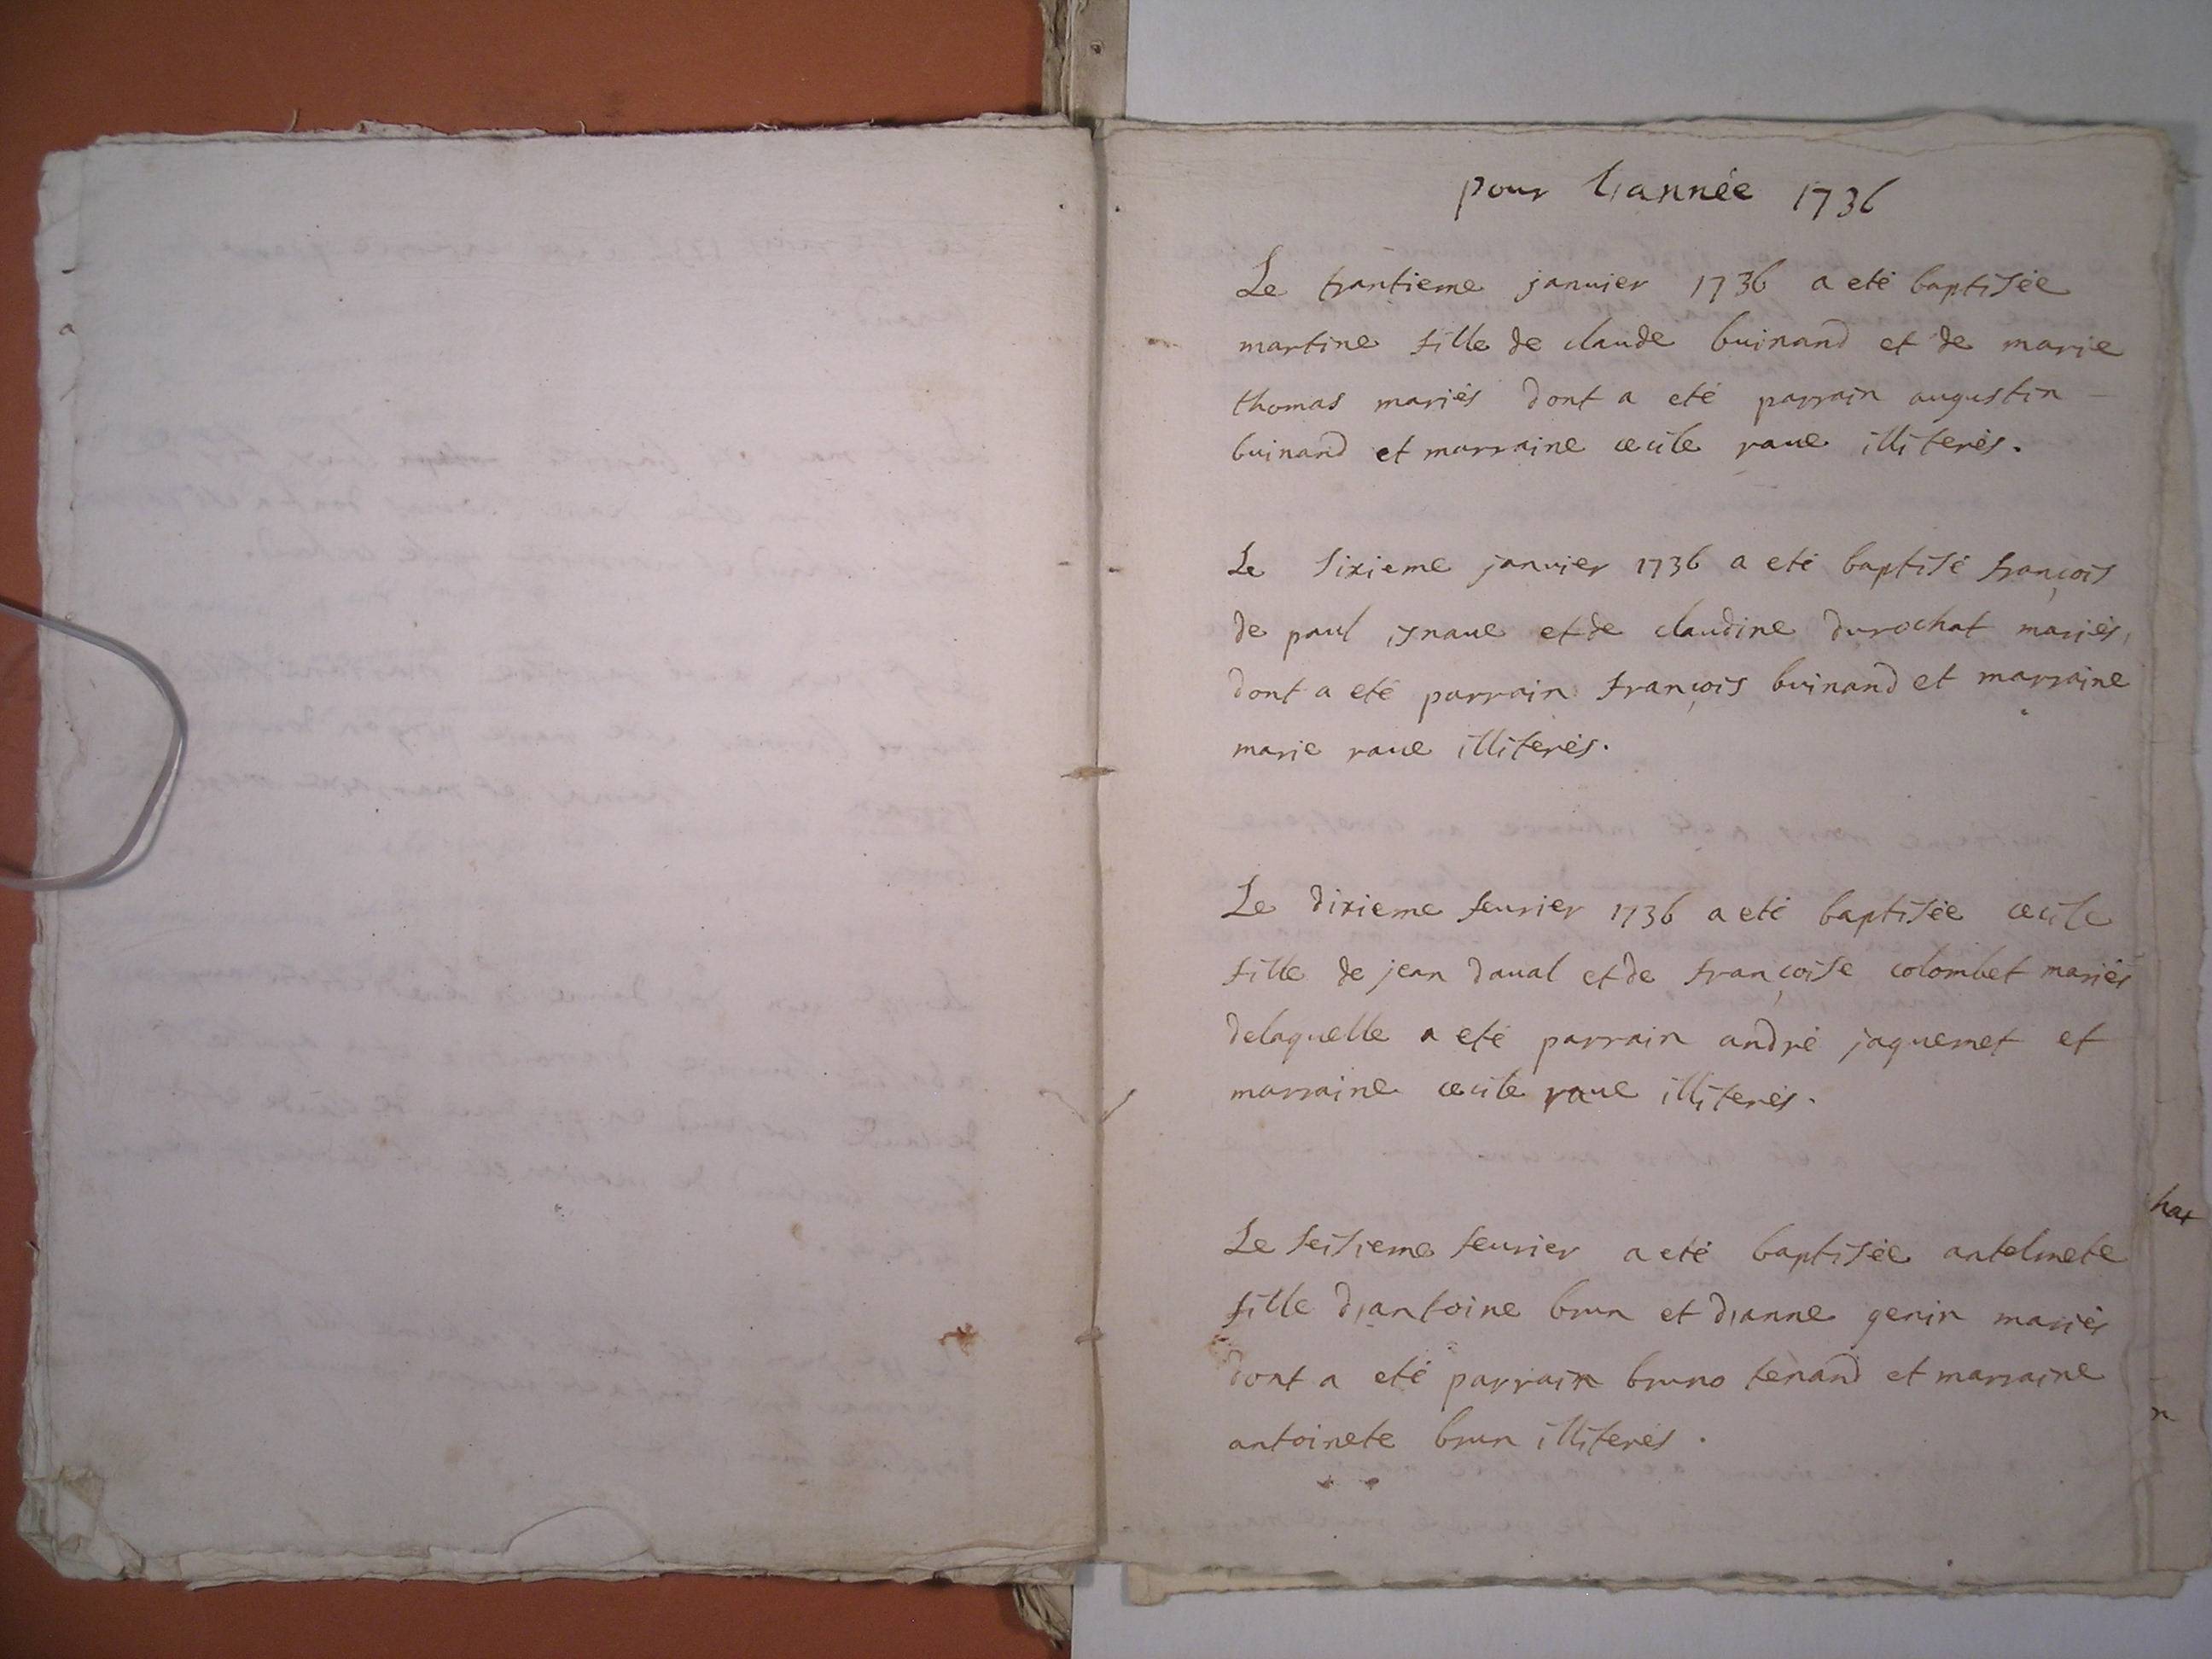 pour l'année 1736
Le trantieme januier 1736 a eté baptisée
martine fille de claude buinand et de marie
thomas mariés dont a eté parrain augustin
buinand et marraine cecile raue illiterés.
Le sixieme januier 1736 a eté baptisé françois
de paul ynaue et de claudine durochat mariés,
dont a eté parrain françois buinand et marraine
marie raue illiterés.
Le dixieme feurier 1736 a eté baptisée cecile
fille de jean daual et de françoise colombet mariés
delaquelle a eté parrain andré jaquemet et
marraine cecile raue illiterés.
Le seisieme feurier a eté baptisée antelmete
fille d'antoine brun et d'anne genin mariés
dont a eté parrain bruno tenand et marraine
antoinete brun illiterés.